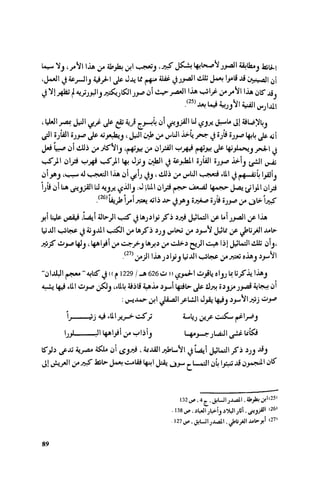 الحائط ومطابقة الصور لأصحابها بشكل كبير، وتعجب ابن بطوطة من هذا الأمر، ولا سيما
أن الصينيين قد قاموا بعمل تلك الصور في غفلة منهم مما يدل على الحرفية والسرعة في العمل،
وقد كان هذا الأمر من غرائب هذا العصر حيث أن صور الكاريكتير والبورتريه لم تظهر إلا في
المدارس الفنية الأوربية فيما بعد (25).
وبالإضافة إلى ماسبق يروي لنا القزويني أن بأبسوج قرية تقع على غربي النيل بمصر العليا،
أنه على بابها صورة فأرة في حجر يأخذ الناس من طين النيل، ويطبعونه على صورة الفأرة التي
في الحجر ويحملونها على بيوتهم فيهرب الفئران من بيوتهم، والأكثر من ذلك أن صبياً فعل
نفس الشئ وأخذ صورة الفأرة المطبوعة في الطين ونزل بها المركب فهرب فئران المركب
وألقوا بأنفسهم في الماء فتعجب الناس من ذلك، وفي رأيي أن هذا التعجب له سبب، وهو أن
فئران الموانئ يصل حجمها لضعف حجم فئران المنازل. والذي يرويه لنا القزويني هنا أن فأراً
كبيراً خاف من صورة فأرة صغيرة وهو في حد ذاته يعتبر أمراً طريفاً (26).
هذا عن الصور أما عن التماثيل فيرد ذكر نوادرها في كتب الرحالة أيضاً، فيقص علينا أبو
حامد الغرناطي عن تماثيل لأسود من نحاس ورد ذكرها من الكتب المدونة في عجائب الدنيا
،وأن تلك التماثيل إذا هبت الريح دخلت من دبرها وخرجت من أفواهها، ولها صوت كزئير
الأسود وهذه تعتبر من عجائب الدنيا ونوادر هذا الزمن (27).
وهذا يذكرنا بما رواه ياقوت الحموي (( ت 626 هـ / 1229 م )) في كتابه " معجم البلدان"
أن ببجاية قصور مزودة ببرك على حافتها أسود مذهبة قاذفة بالماء، ولكن صوت الماء فيها يشبه
صوت زئير الأسود وفيها يقول الشاعر الصقلي ابن حمديس :
وضراغم سكنت عرين رياسة تركت خرير الماء فيه زئيـــــــراً
فكأنما غشى النضار جسومهــا وأذاب من أفواهها البلـــــــورا
وقد ورد ذكر التماثيل أيضاً في الأساطير القديمة، فيروى أن ملكة مصرية تدعى دلوكا
كان المنجمون قد تنبئوا بأن التمساح سوف يقتل ابنها فقامت بعمل حائط كبير من العريش إلى
(25) ابن بطوطة، المصدر السابق، ج 4، ص 132
(26) القزويني، آثار البلاد وأخبار العباد، ص 138.
(27) أبو حامد الغرناطي، المصدر السابق، ص 127.
89